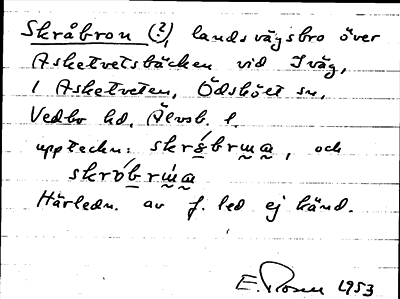 Skråbron (?), landsvägsbro över
Asketvetsbäcken vid Iväg,
1 Asketveten, Ödskölt sn,
Vedbo hd, Älvsb. l.
uppteckn: skrǻbrɯa, och
skróbrɯ́a
Härledn. av f. led ej känd.
E. Rosen 1953